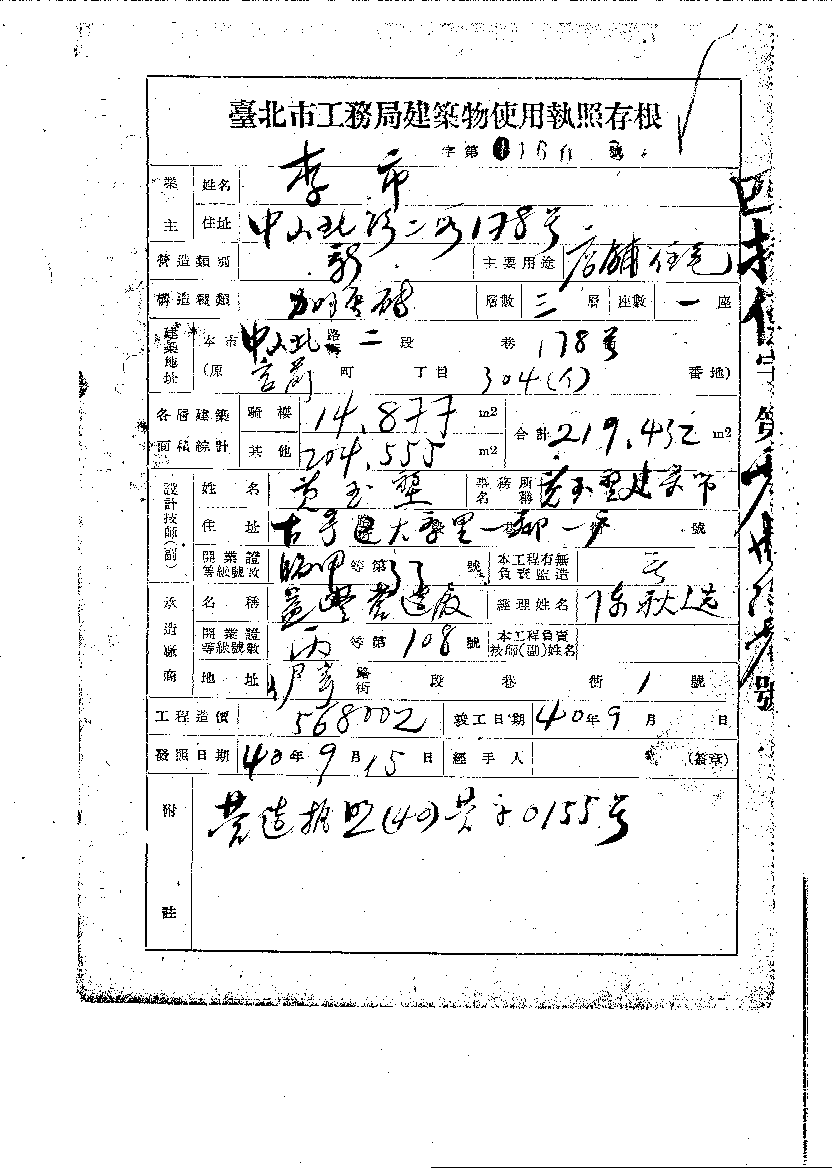 臺北市工務局建築物使用執照存根
字第0160號
業主 姓名 李市
住址 中山北路二段178號
營造類別 新 主要用途 店舖住宅
構造種類 加強磚 層數 三層 座數 一座
建築地址 本市 中山北路街 二段 巷 178号
(原 宮前町 丁目 304(1) 番地)
各層建築面積總計 騎樓 14.877 m2 合計 219.432 m2
其他 204.555 m2
設計技師(副) 姓名 黃玉 事務所名稱 黃玉 建築師
住址 古亭區大學里一鄰一 號
開業證等級號改 甲等第 號 本工程有無負責監造
承造廠商 名稱 益興營造廠 經理姓名 陳秋
開業證等級號數 丙等第108號 本工程負責技師(副)姓名
地址 路街 段 巷 街 1 號
工程造價 568002 竣工日期 40年9月 日
發照日期 40年9月15日 經手人 (簽章)
附註 營造執照(40)營字0155号